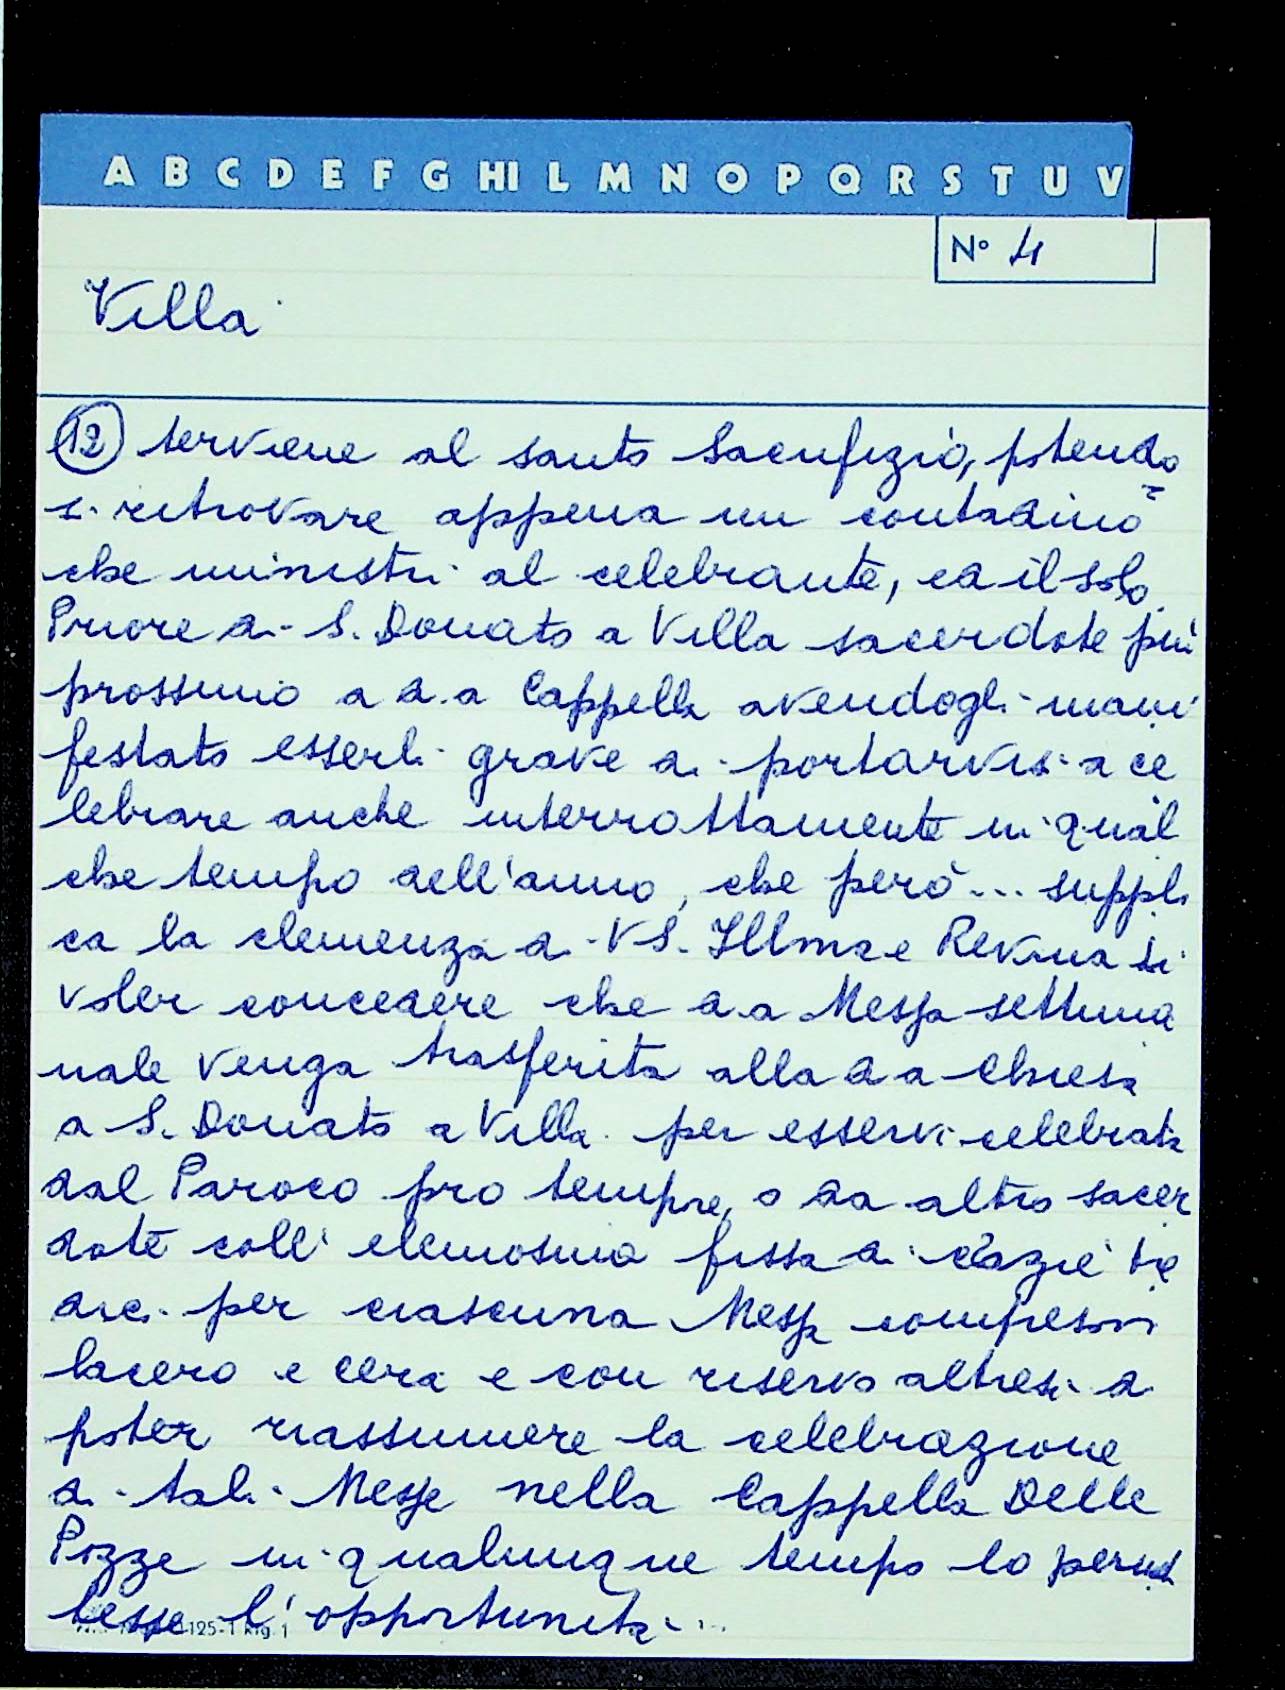 A B C D E F G HI L M N O P Q R S T U V
N° 4
Villa
12 terviene al santo Sacrifizio, potendo
si ritrovare appena un contadino
che ministri al celebrante, ed il solo
Priore di S. Donato a Villa sacerdote più
prossimo a d.a Cappella avendogli mani
festato esserli grave di portarvisi a ce
lebrare anche interrottamente in qual
che tempo dell'anno, che però... suppli
ca la clemenza di VS. Illma e Revma di
voler concedere che d.a Messa settima
nale venga trasferita alla d.a Chiesa
di S. Donato a Villa per esservi celebrata
dal Paroco pro tempre, o da altro sacer
dote coll' elemosina fissa di crazie tre
dici per ciascuna Messa compresovi
lacero e cera e con riservo altresi di
poter riassumere la celebrazione
di tali Messe nella Cappella Delle
Pozze in qualunque tempo lo permet
tesse l'opportunità...
1125-1 Rig. 1